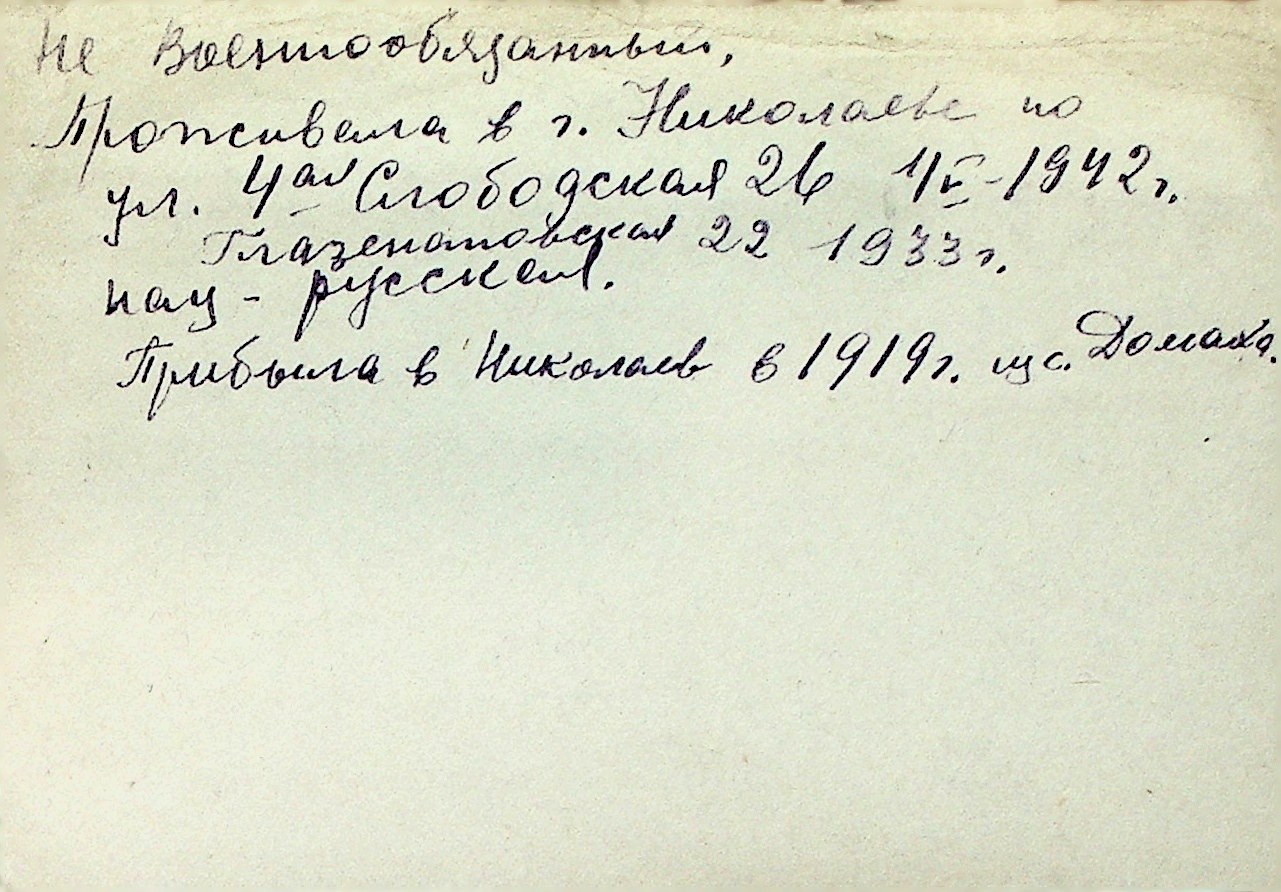 Не Военнообязанный,
Проживала в г. Николаеве по
ул. 4ая Слободская 26 1/V-1942г.
Глазенаповская 22 1933г.
нац - русская.
Прибыла в Николаев в 1919г. из с. Домаха.